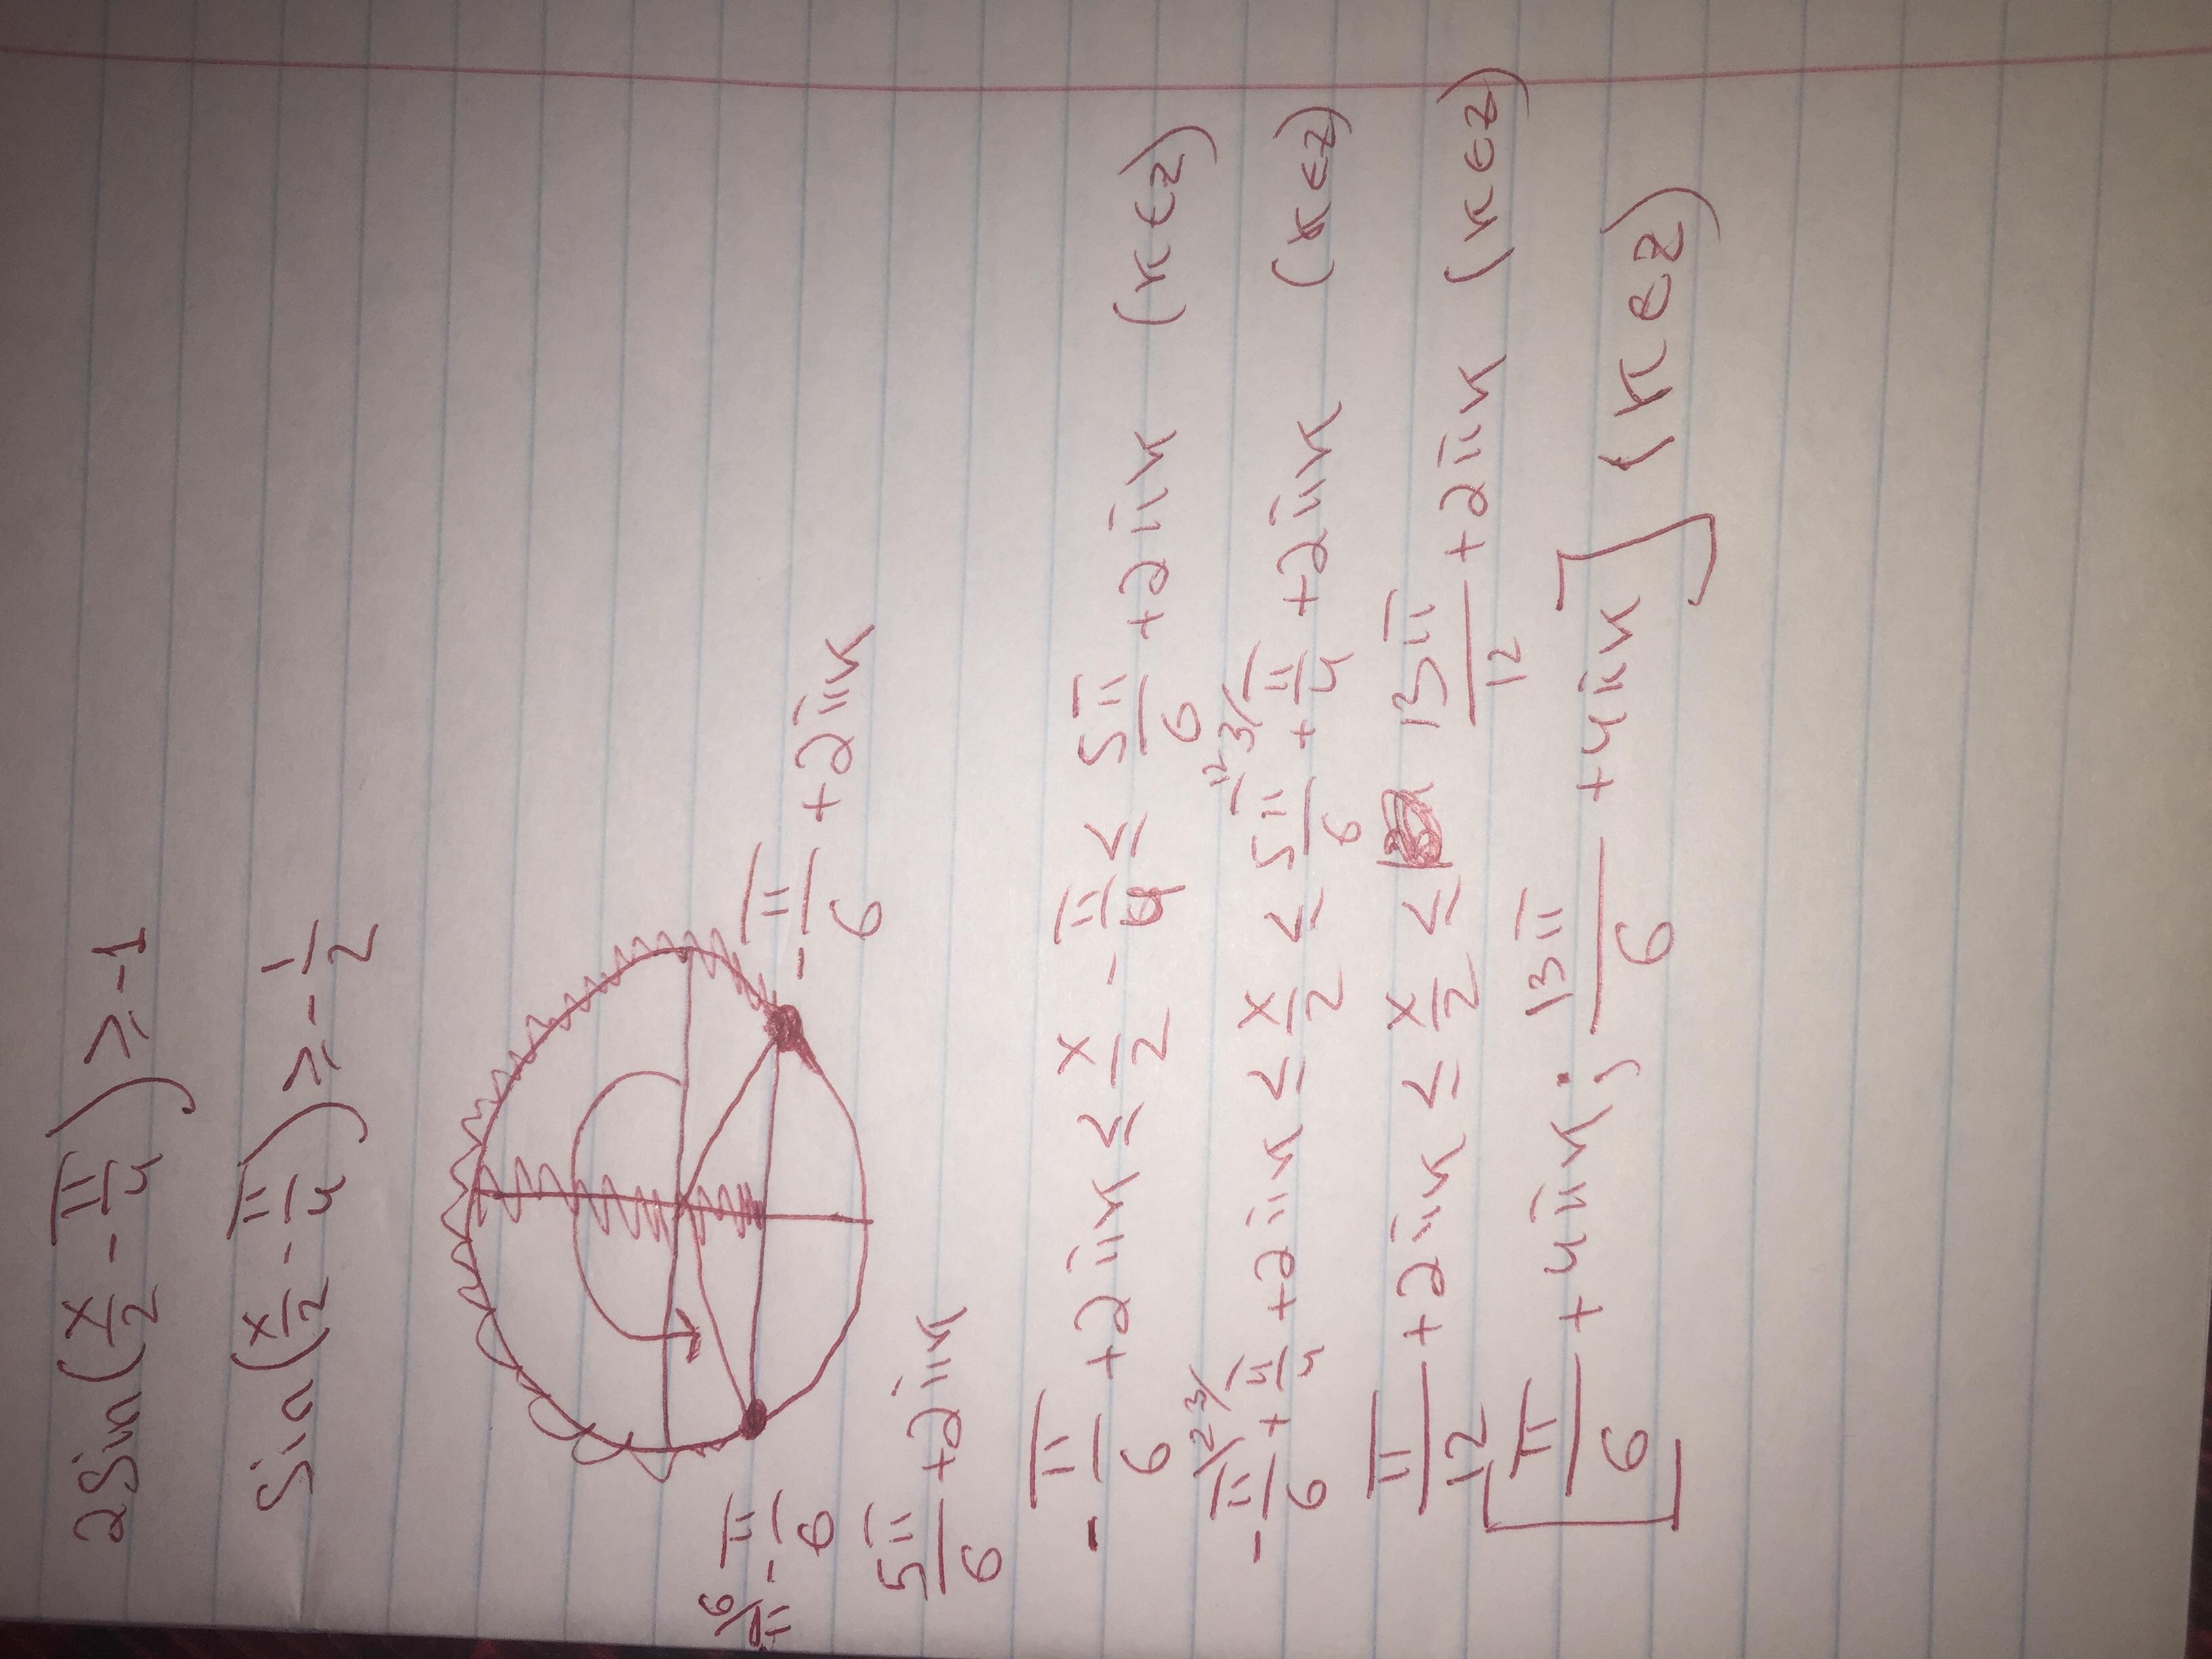 2Sin(x/2 - π/4) ≥ -1
Sin(x/2 - π/4) ≥ -1/2
-π/6 + 2πk
π - π/6
5π/6 + 2πk
-π/6 + 2πk ≤ x/2 - π/4 ≤ 5π/6 + 2πk (k∈z)
-π/6 + π/4 + 2πk ≤ x/2 ≤ 5π/6 + π/4 + 2πk (k∈z)
π/12 + 2πk ≤ x/2 ≤ 13π/12 + 2πk (k∈z)
[π/6 + 4πk; 13π/6 + 4πk] (k∈z)